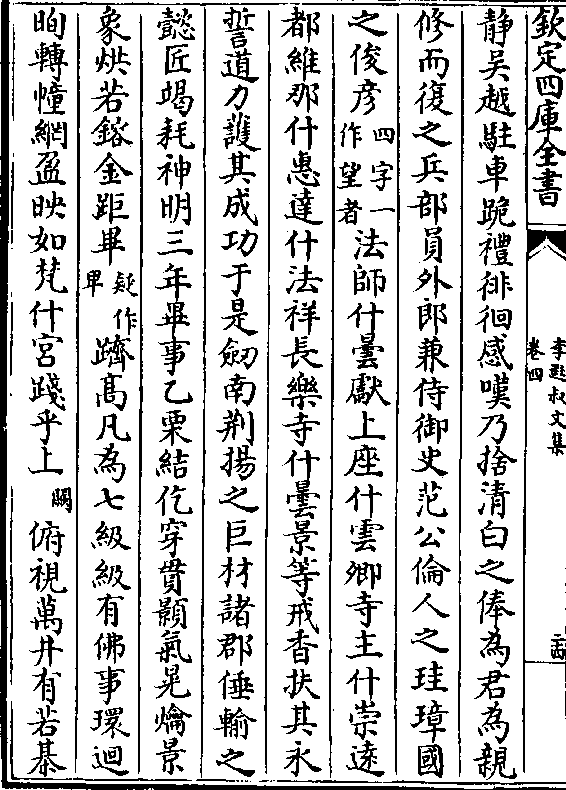 欽定四庫全書
李遐叔文集
卷四
二十四
静吴越駐車跪禮徘徊感嘆乃捨清白之俸為君為親
修而復之兵部員外郎兼侍御史范公倫人之珪璋國
之俊彦四字一作望者法師什曇獻上座什雲卿寺主什崇遠
都維那什惠達什法祥長樂寺什曇景等戒香扶其永
誓道力護其成功于是劒南荆揚之巨材諸郡倕輸之
懿匠竭耗神明三年畢事乙栗結仡穿貫顥氣晃爚景
象烘若鎔金距畢疑作畢躋髙凡為七級級有佛事環迴
眴轉幢網盈映如梵什宮踐乎上闕俯視萬井有若棊